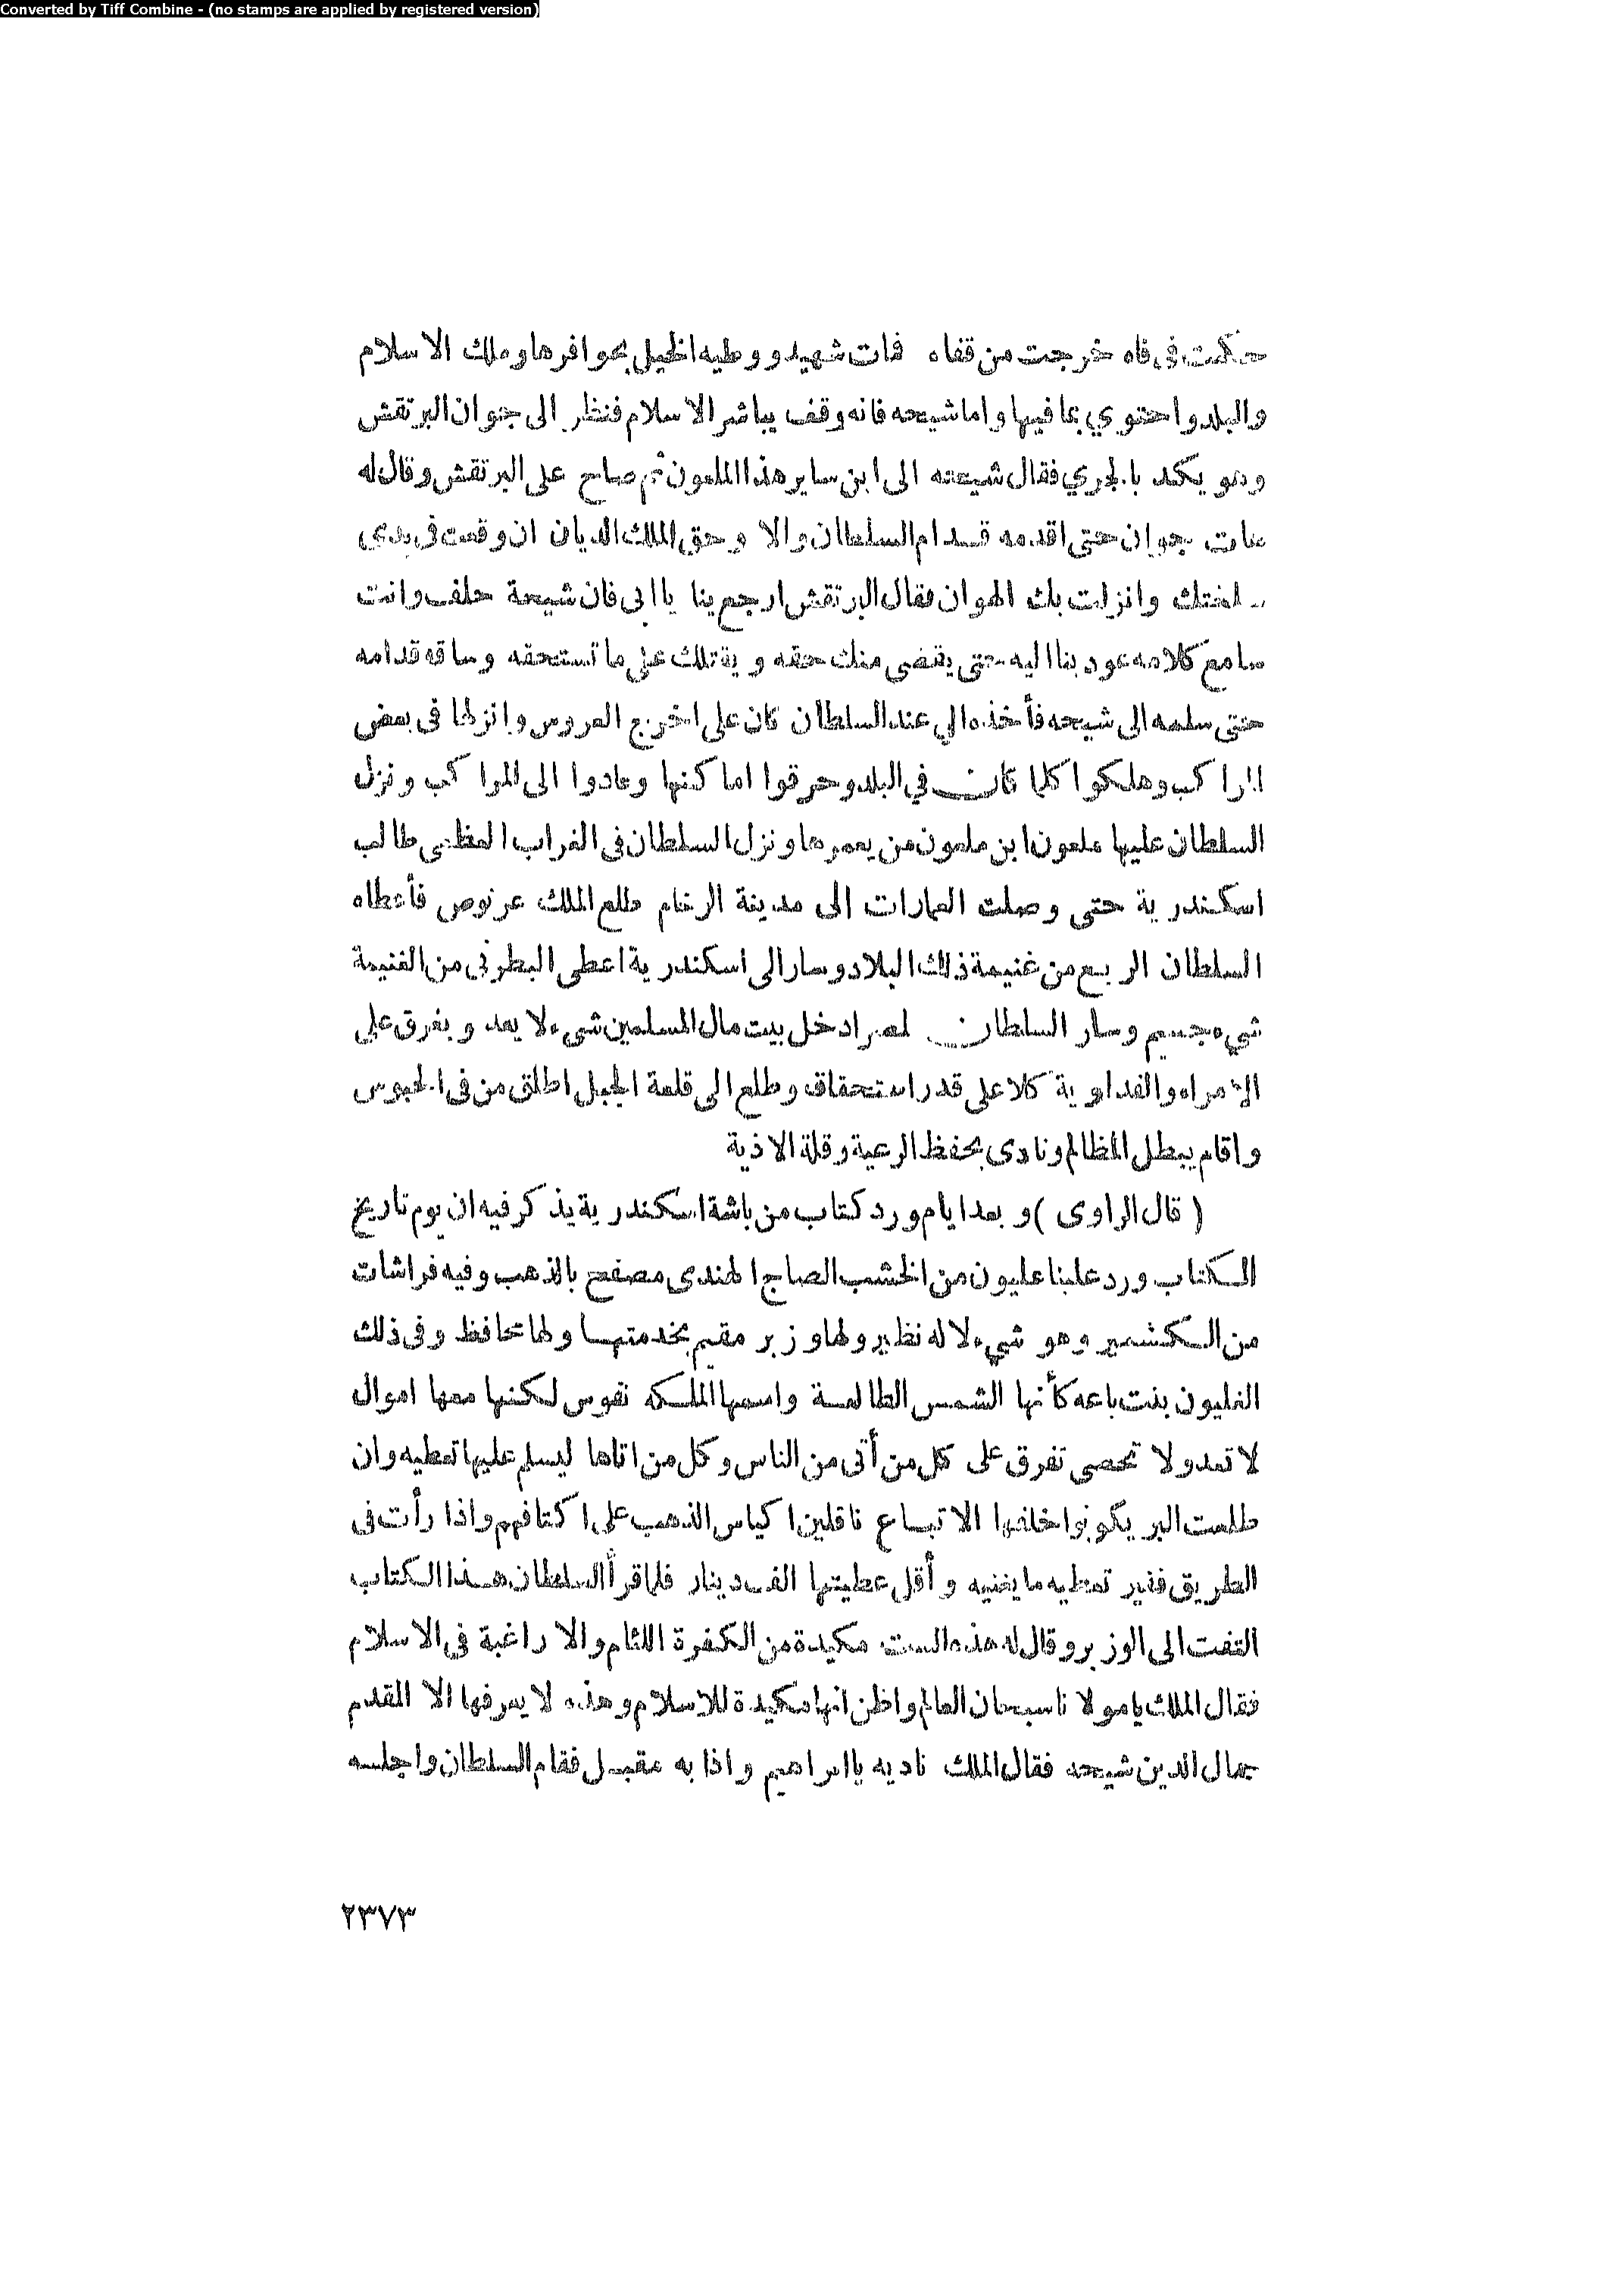 Converted by Tiff Combine - (no stamps are applied by registered version)
حكمت فى فاه خرجت من قفاه فمات شهيد ووطيه الخيل بحوافرها وملك الاسلام
والبلد واحتوي بما فيها واما شيحه فانه وقف يباشر الاسلام فنظر الى جنوان البرتقش
وهو يكد بالجري فقال شيحته الى ابن ساير هذا الملعون ثم صاح على البرتقش وقال له
هات جوان حتى اقدمه قدام السلطان والا وحق الملك الديان ان وقعت فى يدي
سلختك وانزلت بك الهوان فقال البرتقش ارجع بنا يا ابى فان شيحة حلف وانت
سامع كلامه عود بنا اليه حتى يقضى منك حقه ويقتلك على ما تستحقه وساقه قدامه
حتى سلمه الى شيحه فأخذه الي عند السلطان كان على اخرج العروس وانزلها فى بعض
المراكب وهلكوا كلما كان في البلد وحرقوا اماكنها وعادوا الى المراكب ونزل
السلطان عليها ملعون ابن ملعون من يعمرها ونزل السلطان فى الغراب العظمى طالب
اسكندرية حتى وصلت العمارات الى مدينة الرخام طلع الملك عرنوص فأعطاه
السلطان الربع من غنيمة ذلك البلاد وسار الى اسكندرية اعطى البطرنى من الغنيمة
شيء جسيم وسار السلطان لمصر ادخل بيت مال المسلمين شىء لا يعد وبفرق على
الامراء والفداوية كلا على قدر استحقاق وطلع الى قلعة الجبل اطلق من فى الحبوس
واقام يبطل المظالم ونادى بحفظ الرعية وقلة الاذية
( قال الراوى ) وبعد ايام ورد كتاب من باشة اسكندرية يذكر فيه ان يوم تاريخ
الكتاب ورد علينا عليون من الخشب الصاج الهندى مصفح بالذهب وفيه فراشات
من الكشمير وهو شيء لا له نظير ولها وزير مقيم بخدمتها ولها محافظ وفى ذلك
الغليون بنت باعه كأنها الشمس الطالعة واسمها الملكه نفوس لكنها معها اموال
لا تعد ولا تحصى تفرق على كل من أتى من الناس وكل من اتاها ليسلم عليها تعطيه وان
طلعت البر يكونوا خلفها الاتباع ناقلين اكياس الذهب على اكتافهم واذا رأت فى
الطريق فقير تعطيه ما يغنيه وأقل عطيتها الف دينار فلما قرأ السلطان هذا الكتاب
التفت الى الوزير وقال له هذه الست مكيدة من الكفرة اللئام والا راغبة فى الاسلام
فقال الملك يا مولانا سبحان العالم واظن انها مكيدة للاسلام وهذه لا يعرفها الا المقدم
جمال الدين شيحه فقال الملك ناديه يا ابراهيم واذا به مقبل فقام السلطان واجلسه
٢٣٧٣